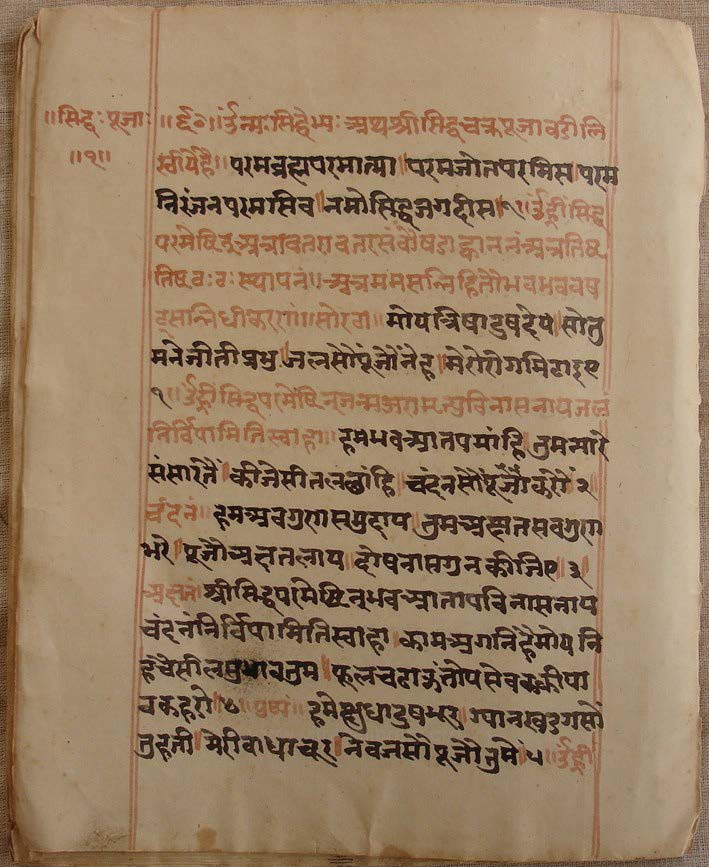 ॥सिद्धः पूजाः
॥१॥
॥६०॥ र्उनमः सिद्धेभ्यः अथ श्री सिद्धचक्र पूजा वडी लि
परमब्रह्मपरमात्मा॥ परमजोतपरमिस॥ परम
निरंजनपरमसिव॥ नमोसिद्धजगदीसा॥१॥ र्उह्रीं सिद्ध
तिष्ठ वः वः स्थापनं॥ अत्रममसन्निहितोभवभववष
सन्निधीकरणं॥सोरठा॥ मोयत्रिषादुषदेय॥ सोतु
मनेजीतीप्रभु॥ जलसौंपूंजौंनेह॥ मेरोरोगमिटाइए
१॥ र्उह्रीं सिद्धपरमेष्टिन्जन्मजरामृत्युविनासनायजलं
निर्विपामितिस्वाहा॥ हमभवआतपमांहि॥ तुमन्यारे
संसारतैं॥ कीजेसीतलछांहि॥ चंदनसौंपूजौंकरौं॥२॥
चंदनं॥ हमअवगुणसमुदाय॥ तुमअक्षतसवगुण
भरे॥ पूजौअक्षतलाय॥ दोषनासगुनकीजिए॥३॥
अक्षतं॥ श्रीसिद्धपरमेष्टिन्भवआतापविनासनाय
चंदनंनिर्विपामितिस्वाहा॥ कामअगनिहैमोय॥नि
हचैसीलसुभावतुम॥ फूलचढाऊंतोय॥सेवककीपा
वकहरो॥४॥ पुष्पं॥ हमेक्षुधादुषभूर॥ ग्यानखडगसों
तुहती॥ मेरीवाधाचूर॥ नेवजसौंपूजौतुमे॥५॥ र्उह्रीं